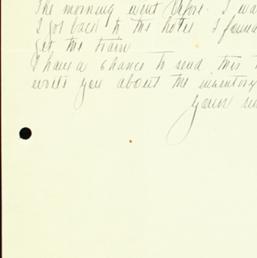 The morning went
I got back to the hotel I found
get the train
I have a chance to send this
write you about the inventory
your